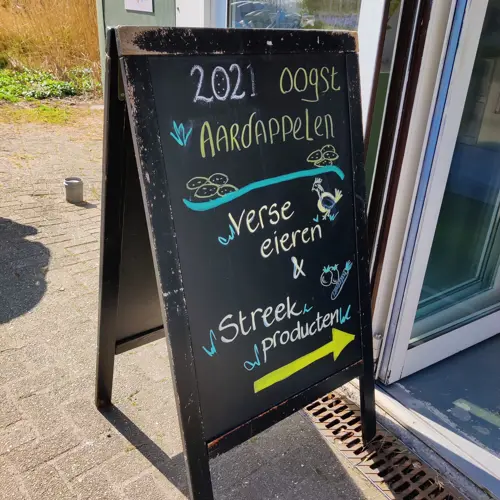 2021 oogst
AARDAPPELEN
Verse
eieren
&
Streek
producten